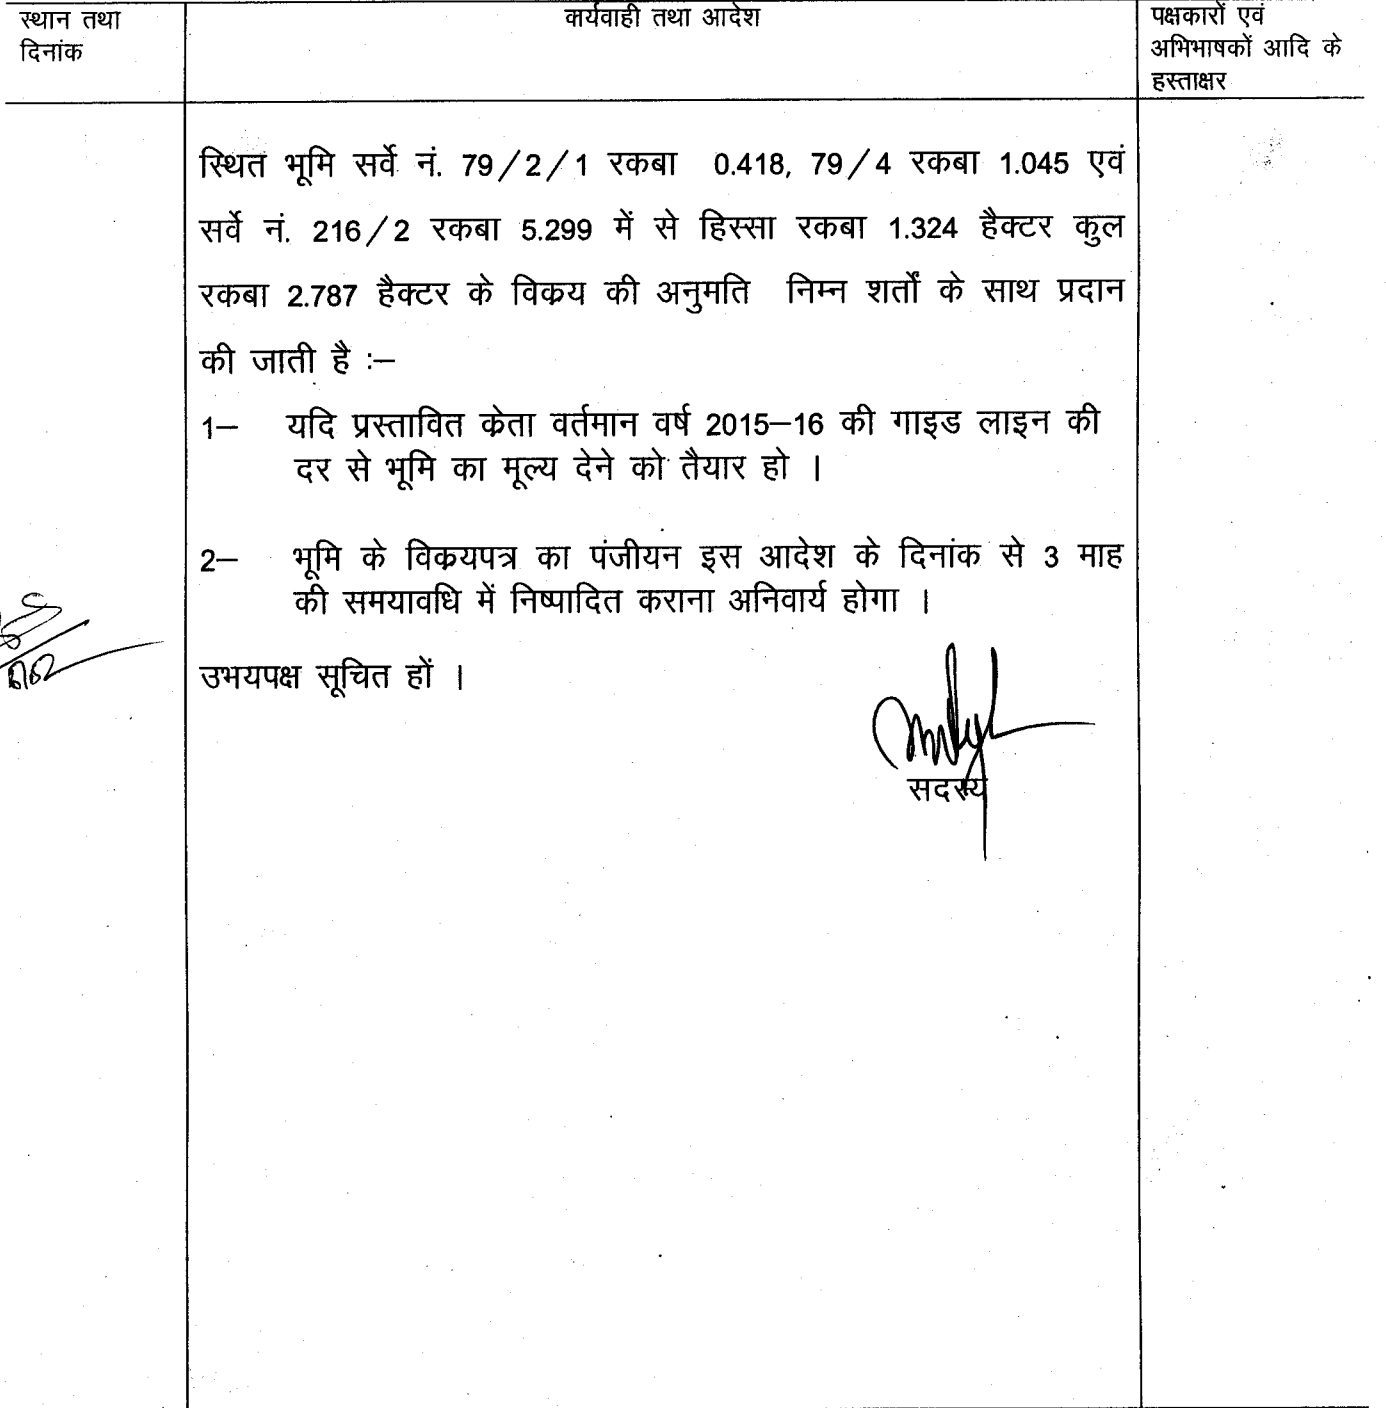 स्थान तथा
दिनांक
कार्यवाही तथा आदेश
पक्षकारों एवं
अभिभाषकों आदि के
हस्ताक्षर
स्थित भूमि सर्वे नं. 79/2/1 रकबा 0.418, 79/4 रकबा 1.045 एवं
सर्वे नं. 216/2 रकबा 5.299 में से हिस्सा रकबा 1.324 हैक्टर कुल
रकबा 2.787 हैक्टर के विक्रय की अनुमति निम्न शर्तों के साथ प्रदान
की जाती है :–
1– यदि प्रस्तावित क्रेता वर्तमान वर्ष 2015–16 की गाइड लाइन की
दर से भूमि का मूल्य देने को तैयार हो ।
2– भूमि के विक्रयपत्र का पंजीयन इस आदेश के दिनांक से 3 माह
की समयावधि में निष्पादित कराना अनिवार्य होगा ।
उभयपक्ष सूचित हों ।
सदस्य